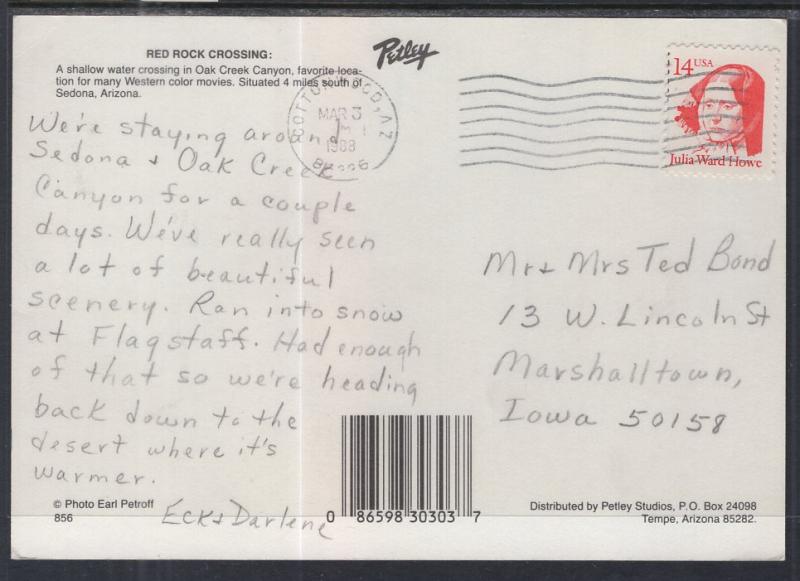 RED ROCK CROSSING:
A shallow water crossing in Oak Creek Canyon, favorite loca-
tion for many Western color movies. Situated 4 miles south of
Sedona, Arizona.
Petley
COTTONWOOD, AZ
MAR 3
1988
14 USA
Julia Ward Howe
We're staying around
Sedona + Oak Creek
Canyon for a couple
days. We've really seen
a lot of beautiful
scenery. Ran into snow
at Flagstaff. Had enough
of that so we're heading
back down to the
desert where it's
warmer.
Eck + Darlene
Mr + Mrs Ted Bond
13 W. Lincoln St
Marshalltown,
Iowa 50158
© Photo Earl Petroff
856
0 86598 30303 7
Distributed by Petley Studios, P.O. Box 24098
Tempe, Arizona 85282.